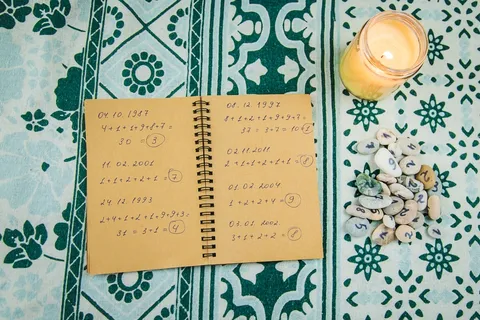 04.10.1987
4+1+1+9+8+7=
30 = 3
11.02.2001
1+1+2+2+1 = 7
24.12.1993
2+4+1+2+1+9+9+3=
31 = 3+1 = 4
08.12.1997
8+1+2+1+9+9+7=
37 = 3+7 = 10
02.11.2011
2+1+1+2+1+1 = 8
01.02.2004
1+2+2+4 = 9
03.01.2002
3+1+2+2 = 8